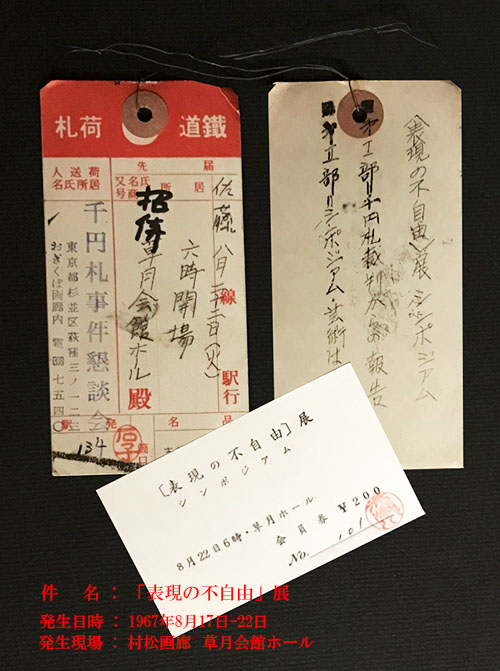 鐵道荷札
届先
居所
氏名又商号
佐藤
八月二十二日(火)
六時開場
招待
草月会館ホール
線
駅行
殿
荷送人
居所氏名
千円札事件懇談会
東京都杉並区荻窪三ノ一二
おぎくぼ画廊内 電
発駅
品名
134
《表現の不自由》展 シンポジアム
第I部=千円札裁判 報告
第II部=シンポジアム・芸術は
[表現の不自由]展
シンポジアム
8月22日6時・草月ホール
会員券 ¥200
No. 101
件 名:「表現の不自由」展
発生日時:1967年8月17日-22日
発生現場:村松画廊 草月会館ホール